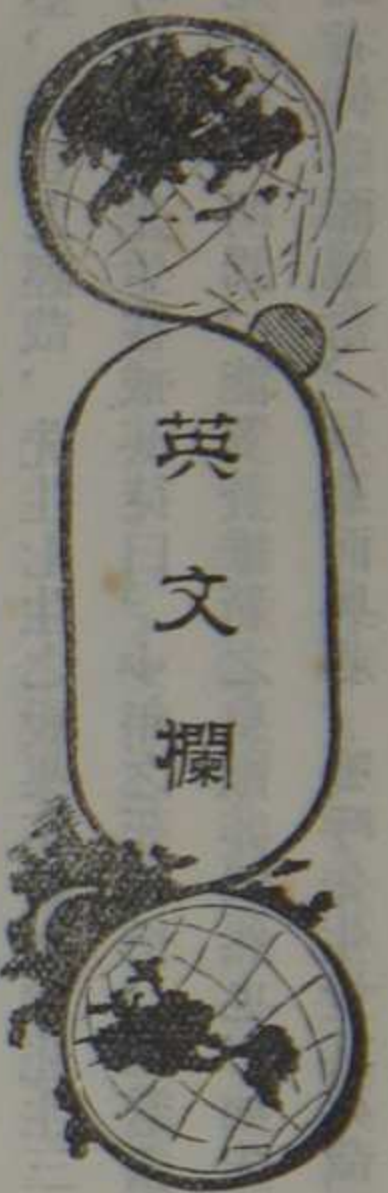 英文欄